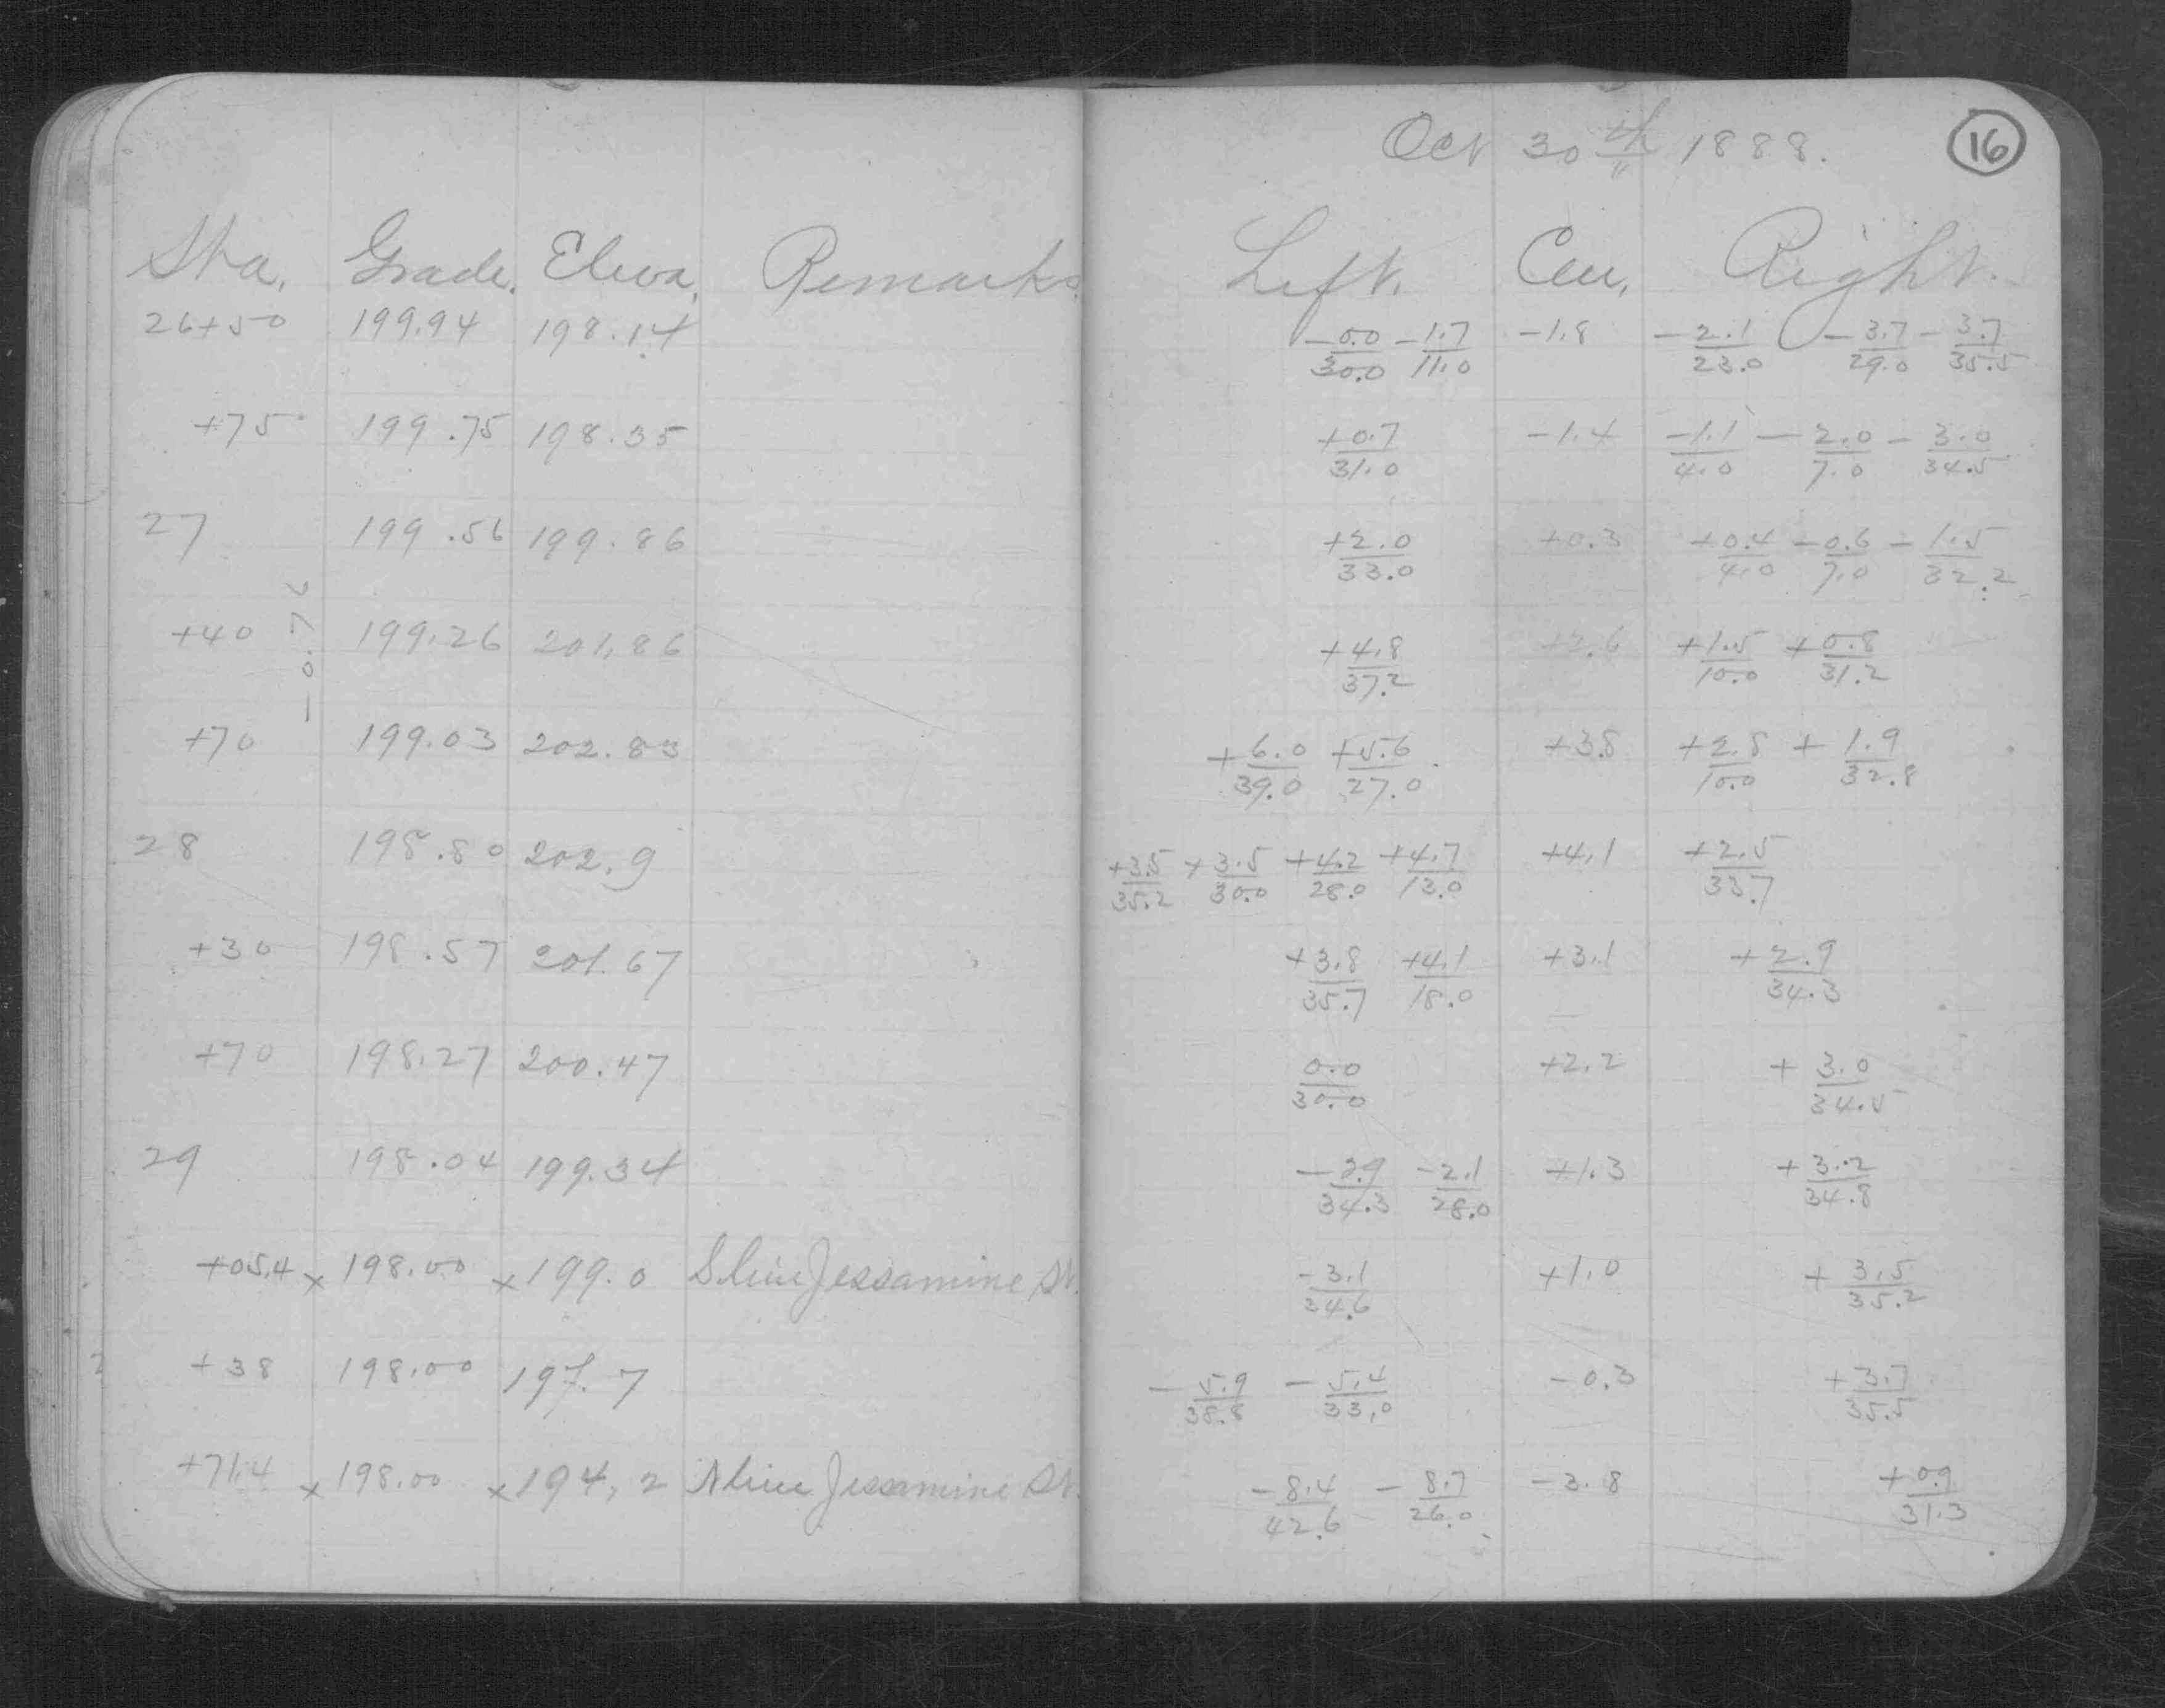 Oct 30th 1888.
16
Sta. Grade. Eleva. Remarks. Left. Cen. Right.
26+50 199.94 198.14 -0.0/30.0 -1.7/11.0 -1.8 -2.1/23.0 -3.7/29.0 -3.7/35.5
+75 199.75 198.35 +0.7/31.0 -1.4 -1.1/4.0 -2.0/7.0 -3.0/34.5
27 199.56 199.86 +2.0/33.0 +0.3 +0.4/4.0 -0.6/7.0 -1.5/32.2
-0.76
+40 199.26 201.86 +4.8/37.2 +2.6 +1.5/10.0 +0.8/31.2
+70 199.03 202.83 +6.0/39.0 +5.6/27.0 +3.8 +2.8/10.0 +1.9/32.8
28 198.80 202.9 +3.5/35.2 +3.5/30.0 +4.2/28.0 +4.7/13.0 +4.1 +2.5/33.7
+30 198.57 201.67 +3.8/35.7 +4.1/18.0 +3.1 +2.9/34.3
+70 198.27 200.47 0.0/30.0 +2.2 +3.0/34.5
29 198.04 199.34 -2.9/34.3 -2.1/28.0 +1.3 +3.2/34.8
+05.4 x 198.00 x 199.0 S line Jessamine St. -3.1/34.6 +1.0 +3.5/35.2
+38 198.00 197.7 -5.9/38.8 -5.4/33.0 -0.3 +3.7/35.5
+71.4 x 198.00 x 194.2 N line Jessamine St. -8.4/42.6 -8.7/26.0 -3.8 +0.9/31.3